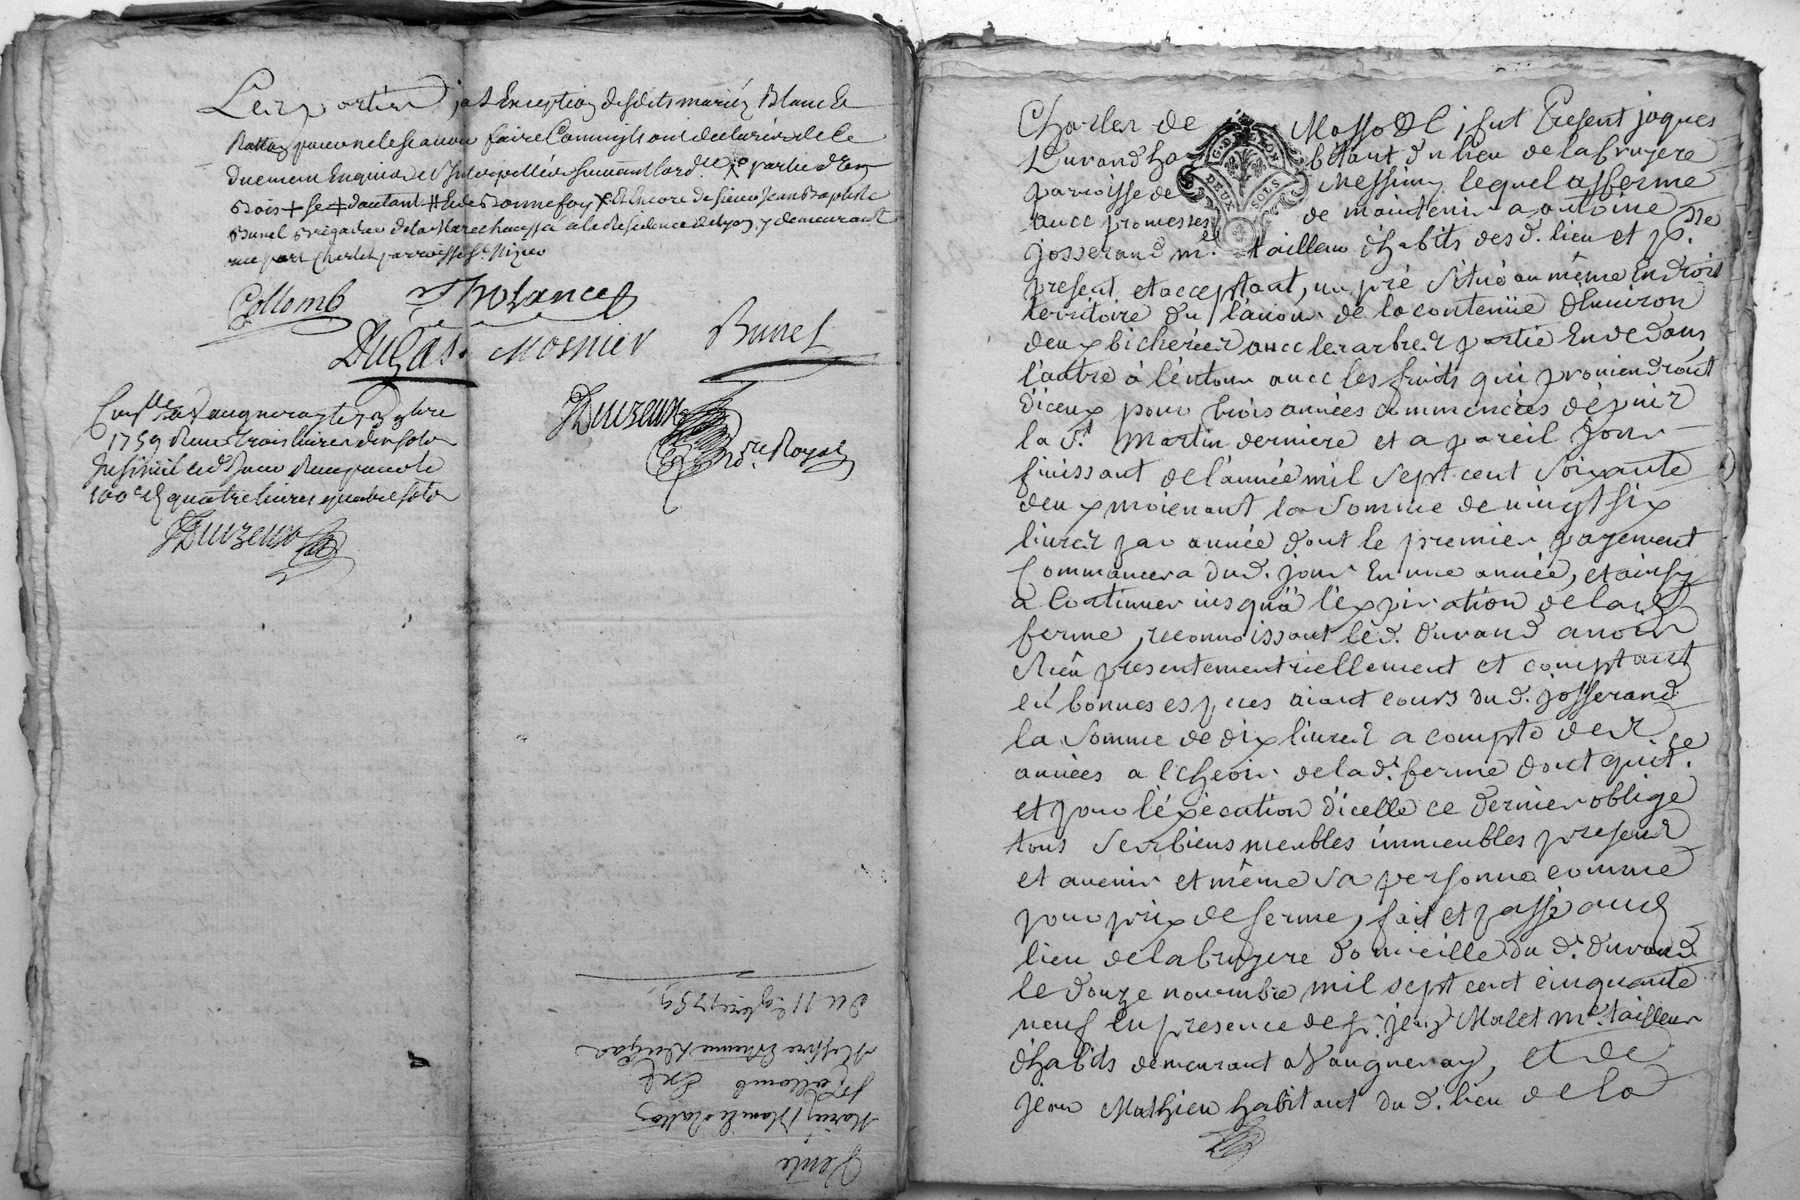 Les parties j a l'Exception desdits mariés Blanc &
Ratton pour ne le scavoir faire Comme ils ont declaré de ce
Duement Enquis et Interpellés suivant l'ord.ce partie d'Eux
Bois + se + d'autant # & de Bonnefoy & Encore de sieur Jean Baptiste
Brunel Brigadier de la Marechaussée a la Residence de Lyon y demeurant
rue port Charlet parroisse St Nizier
Collomb Tholance
Dugas Mosnier Brunel
Duizeux
Con.lle a Vaugneray le 13 9bre
1759 Reçu trois livres dix sols
Insinué led. jour Reçu pour le
100e d. quatre livres quatre sols
Duizeux
n.re Royal
Du 11 9bre 1759
Messire Etienne Dugas
Sr Collomb
Mariés Blanc & Ratton
Vente
Charles de Masso &c, fut Present jaques
Durand habitant du lieu de la bruyere
parroisse de Messimy lequel afferme
avec promesses de maintenir a antoine
josserand m.e tailleur d'habits des d. lieu et p.sse
present et acceptant, un pré situé au même Endroit
territoire du lanoir de la contenüe d'Environ
deux bicherées avec les arbres partie En dedans
l'autre à l'entour avec les fruits qui proviendront
d'iceux pour trois années commencées depuis
la St Martin derniere et a pareil jour
finissant de l'année mil sept cent soixante
deux moienant la somme de vingt six
livres par année dont le premier payement
Commancera dud. jour En une année, et ainsy
a Continuer jusqu'a l'expiration de lad.
ferme, reconnoissant led. durand avoir
Reçu presentement réellement et comptant
en bonnes especes aiant cours du d. josserand
la somme de dix livres a compte des
années a l'cheoir de la d. ferme dont quit.ce
et pour l'éxécution d'icelle ce dernier oblige
tous ses biens meubles immeubles presens
et avenir et même sa personne comme
pour prix de ferme, fait et passé aud.
lieu de la bruyere domicille du d. durand
le douze novembre mil sept cent cinquante
neuf En presence de sr. jean Molet m.e tailleur
d'habits demeurant a Vaugneray, et de
jean Mathieu habitant du d. lieu de la
G. DE LYON
DEUX SOLS